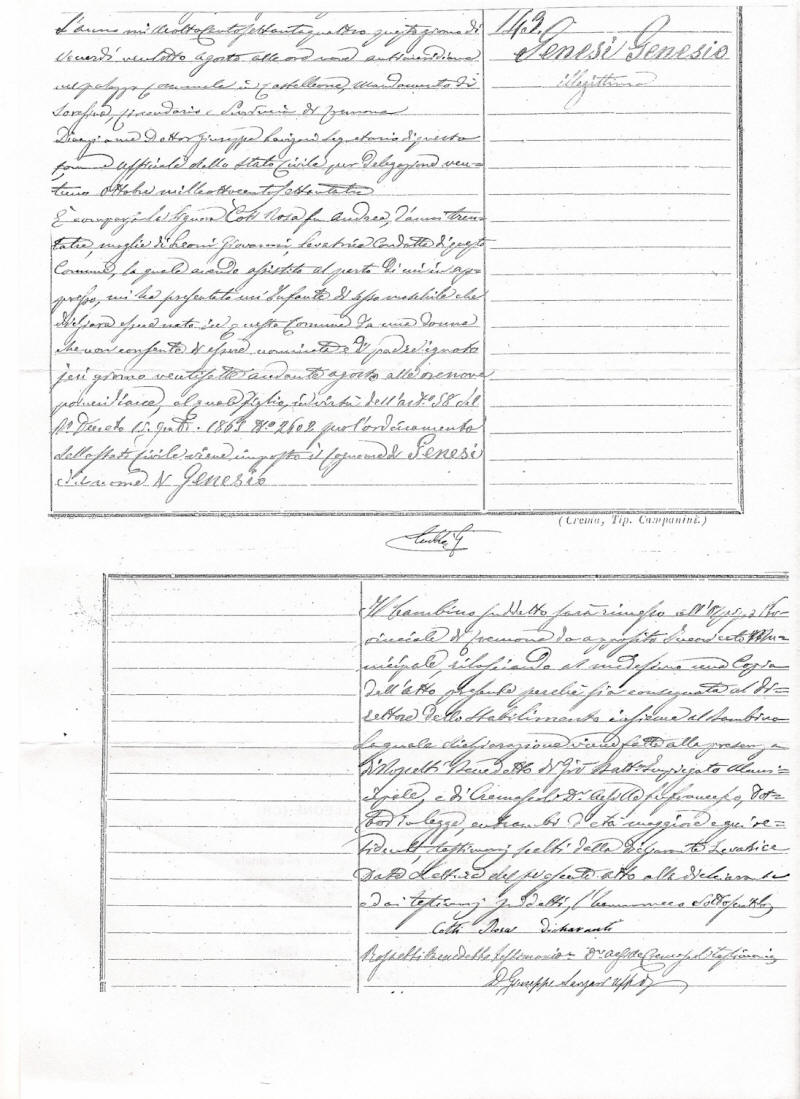 L'anno mille ottocento settantaquattro questo giorno di
Venerdì ventotto agosto alle ore nove antimeridiane
nel palazzo Comunale in Castelleone, Mandamento di
Soresina, Circondario e Provincia di Cremona
Dinanzi a me Dottor Giuseppe Segretario di questo
Comune Ufficiale dello Stato Civile per Delegazione ven-
tuno Ottobre mille ottocento settantatre
È comparsa la Signora Cotti Rosa fu Andrea, d'anni tren-
tatre, moglie di Leoni Giovanni, Levatrice Condotta di questo
Comune, la quale avendo assistito al parto di cui in ap-
presso, mi ha presentato un Infante di sesso maschile che
dichiara esser nato in questo Comune da una donna
che non consente di essere nominata e di padre ignoto
jeri giorno ventisette andante agosto alle ore nove
pomeridiane, al quale figlio, in virtù dell'art.o 58 del
R.o Decreto 15 1865 N.o 2602 per l'ordinamento
dello Stato Civile viene imposto il cognome di Genesi
ed il nome di Genesio
149.
Genesi Genesio
illegittimo
(Crema, Tip. Campanini.)
Il bambino suddetto sarà rimesso all'Ospizio Pro-
vinciale di Cremona da apposito incaricato Mu-
nicipale, rilasciando al medesimo una Copia
dell'atto presente perchè sia consegnata al Di-
rettore dello Stabilimento insieme al Bambino
La quale dichiarazione viene fatta alla presenza
di Rospetti Benedetto di Gio Batt.a Impiegato Muni-
cipale, e di Cremosoli D.r Achille fu Francesco, Dot-
tore in legge, entrambi d'età maggiore e qui re-
sidenti, testimonj scelti dalla Dichiarante Levatrice
Data Lettura del presente atto alla dichiarante
ed ai testimonj suddetti, si sottoscritto
Cotti Rosa Dichiarante
Rospetti Benedetto testimonio D.r Achille Cremosoli testimonio
D. Giuseppe Uff.